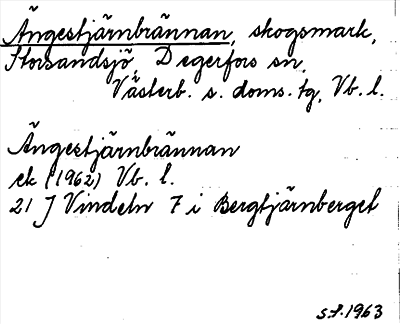 Ängestjärnbrännan, skogsmark,
Storsandsjö, Degerfors sn,
Västerb. s. doms. tg, Vb. l.
Ängestjärnbrännan
ek (1962) Vb. l.
21 J Vindeln 7 i Bergtjärnberget
s.f. 1963